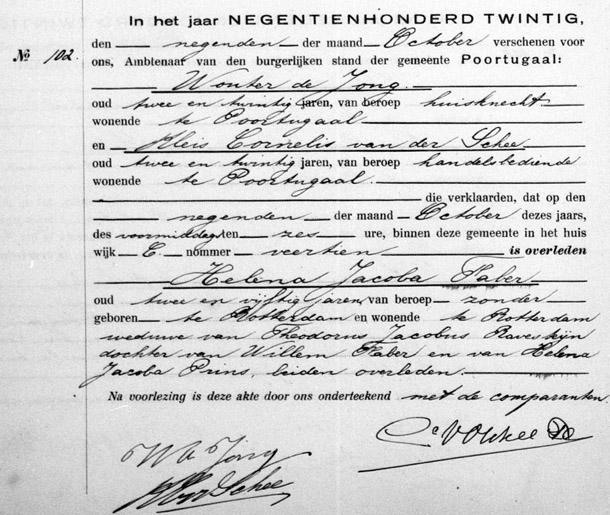 In het jaar NEGENTIENHONDERD TWINTIG,
№ 102.
den negenden der maand October verschenen voor
ons, Ambtenaar van den burgerlijken stand der gemeente Poortugaal:
Wouter de Jong
oud twee en twintig jaren, van beroep huisknecht
wonende te Poortugaal
en Kleis Cornelis van der Schee
oud twee en twintig jaren, van beroep handelsbediende
wonende te Poortugaal.
die verklaarden, dat op den
negenden der maand October dezes jaars,
des voormiddags ten zes ure, binnen deze gemeente in het huis
wijk E. nommer veertien is overleden
Helena Jacoba Faber
oud twee en vijftig jaren, van beroep zonder
geboren te Rotterdam en wonende te Rotterdam
weduwe van Theodorus Jacobus
dochter van Willem Faber en van Helena
Jacoba Prins, beiden overleden.
Na voorlezing is deze akte door ons onderteekend met de comparanten.
W de Jong
Schee